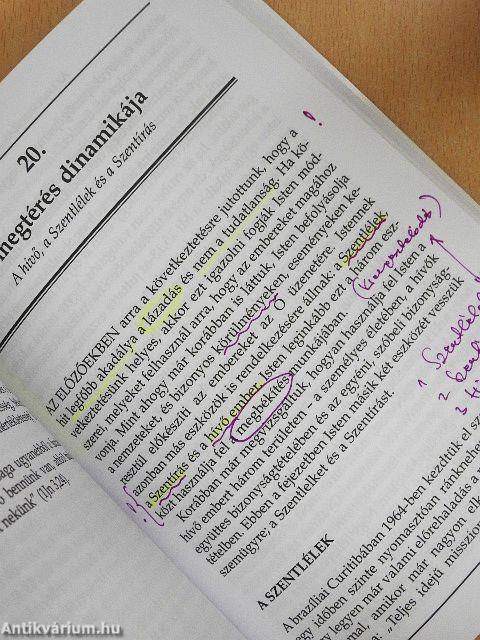 20.
megtérés dinamikája
A hívő, a Szentlélek és a Szentírás
AZ ELŐZŐEKBEN arra a következtetésre jutottunk, hogy a
hit legfőbb akadálya a lázadás és nem a tudatlanság. Ha kö-
vetkeztetésünk helyes, akkor ezt igazolni fogják Isten mód-
szerei, melyeket felhasznál arra, hogy az embereket magához
vonja. Mint ahogy már korábban is láttuk, Isten befolyásolja
a nemzeteket, és bizonyos körülményeken, eseményeken ke-
resztül előkészíti az embereket az Ő üzenetére. Istennek
azonban más eszközök is rendelkezésére állnak: a Szentlélek,
a Szentírás és a hívő ember. Isten leginkább ezt a három esz-
közt használja fel a megbékítés munkájában.
Korábban már megvizsgáltuk, hogyan használja fel Isten a
hívő embert három területen – a személyes életében, a hívők
együttes bizonyságtételében és az egyéni, szóbeli bizonyság-
tételben. Ebben a fejezetben Isten másik két eszközét vesszük
szemügyre, a Szentlelket és a Szentírást.
A SZENTLÉLEK
Brazíliai Curitibában 1964-ben kezdtük el sz
időben szinte nyomasztóan ránknehe
legyen már valami előrehaladás a
mal, amikor már nagyon el
„Teljes idejű misszio
bennünk van, abból
nekünk" (1Jn.3,24).
!
!
1
2
3
Antikvárium.hu